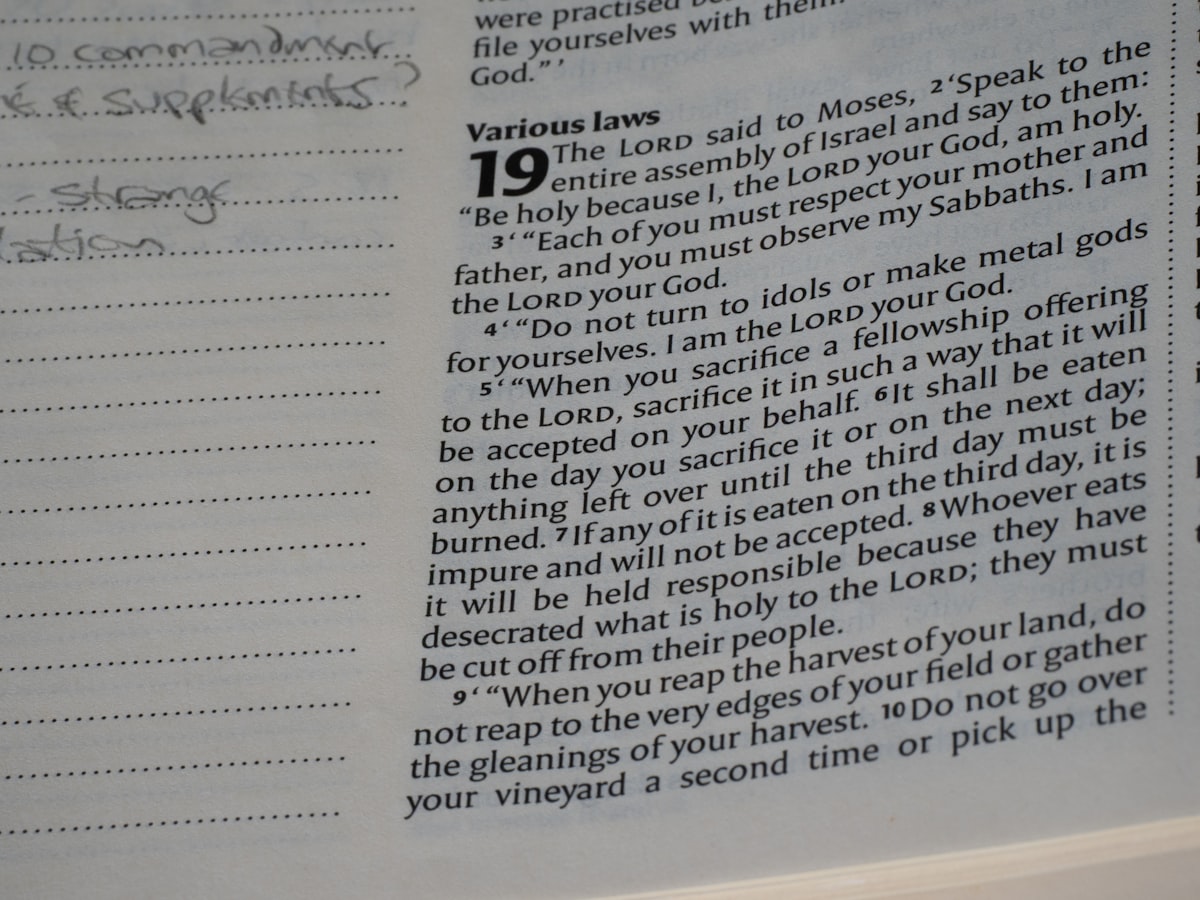 10 commandment
& supplements?
- strange
were practised
file yourselves with them.
God.” ’
Various laws
19 The LORD said to Moses, 2 ‘Speak to the
entire assembly of Israel and say to them:
“Be holy because I, the LORD your God, am holy.
3 ‘ “Each of you must respect your mother and
father, and you must observe my Sabbaths. I am
the LORD your God.
4 ‘ “Do not turn to idols or make metal gods
for yourselves. I am the LORD your God.
5 ‘ “When you sacrifice a fellowship offering
to the LORD, sacrifice it in such a way that it will
be accepted on your behalf. 6 It shall be eaten
on the day you sacrifice it or on the next day;
anything left over until the third day must be
burned. 7 If any of it is eaten on the third day, it is
impure and will not be accepted. 8 Whoever eats
it will be held responsible because they have
desecrated what is holy to the LORD; they must
be cut off from their people.
9 ‘ “When you reap the harvest of your land, do
not reap to the very edges of your field or gather
the gleanings of your harvest. 10 Do not go over
your vineyard a second time or pick up the